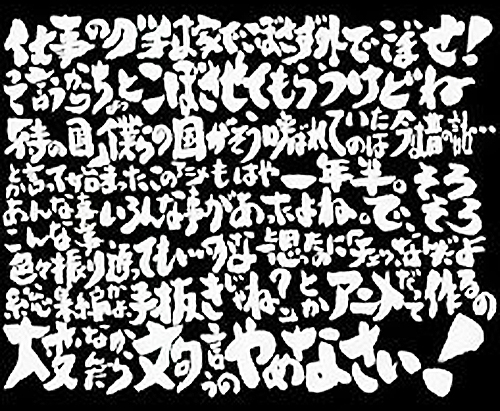 仕事のグチは家でこぼさず外でこぼせ!
って言うからちょっとこぼさせてもらうけどね
「侍の国」僕らの国がそう呼ばれていたのは今は昔の話…
とか言って始まったこのアニメもはや一年半。そろそろ
あんな事こんな事、いろんな事があったよね。で、
色々振り返ってもいーかなと思ったのに「
総集編かよ手抜きじゃね?」とかアニメだって作るの
大変なんだから文句言うのやめなさい!